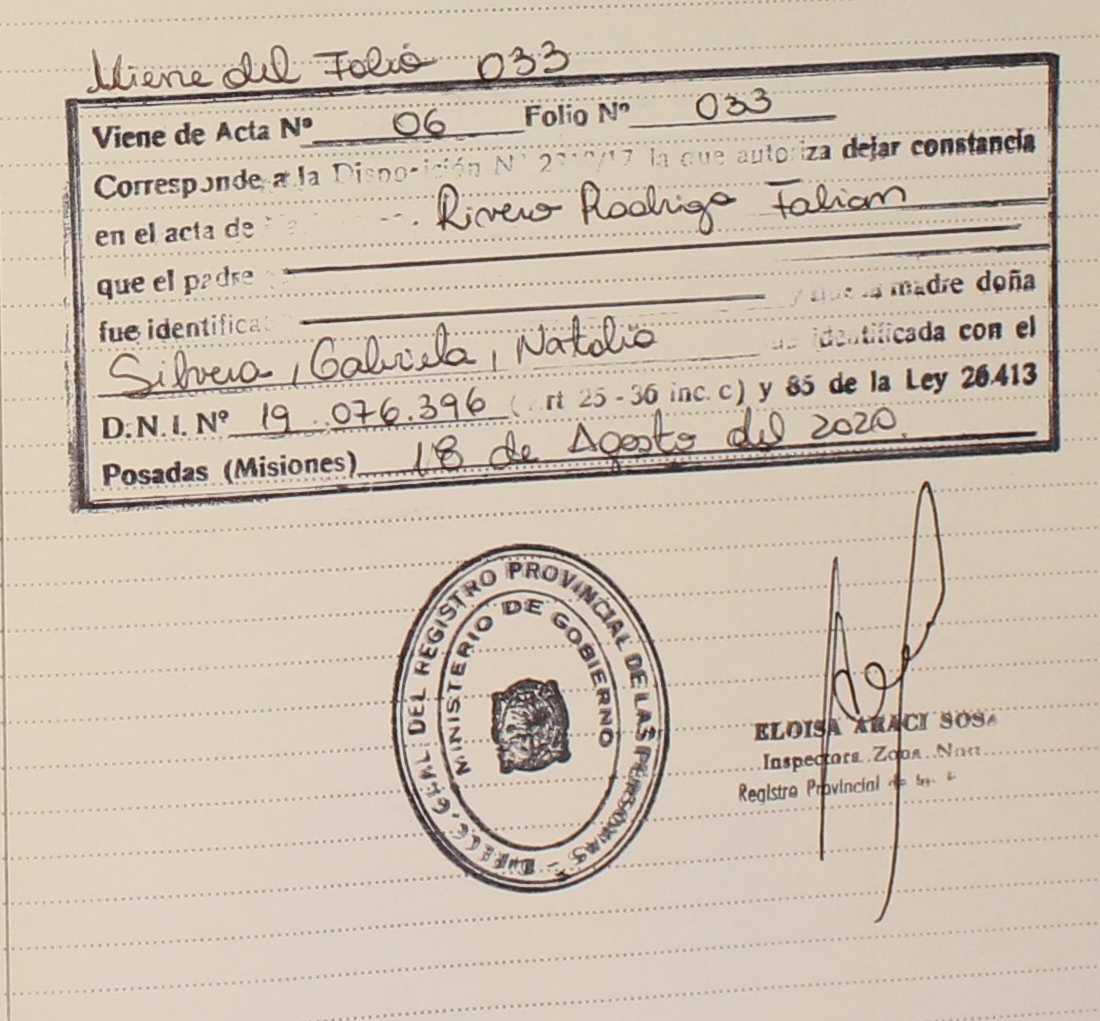 Viene del Folio 033
Viene de Acta Nº 06 Folio Nº 033
Corresponde a la Disposición Nº /17 la que autoriza dejar constancia
en el acta de Rivero Rodrigo Fabian
que el padre
fue identifica y que la madre doña
Silvera, Gabriela, Natalia identificada con el
D.N.I. Nº 19.076.396 (rt 25 - 36 inc. c) y 85 de la Ley 26.413
Posadas (Misiones) 18 de Agosto del 2020.
DIREC. GRAL. DEL REGISTRO PROVINCIAL DE LAS PERSONAS -
MINISTERIO DE GOBIERNO
ELOISA ARACI SOSA
Inspectora Zona
Registro Provincial de